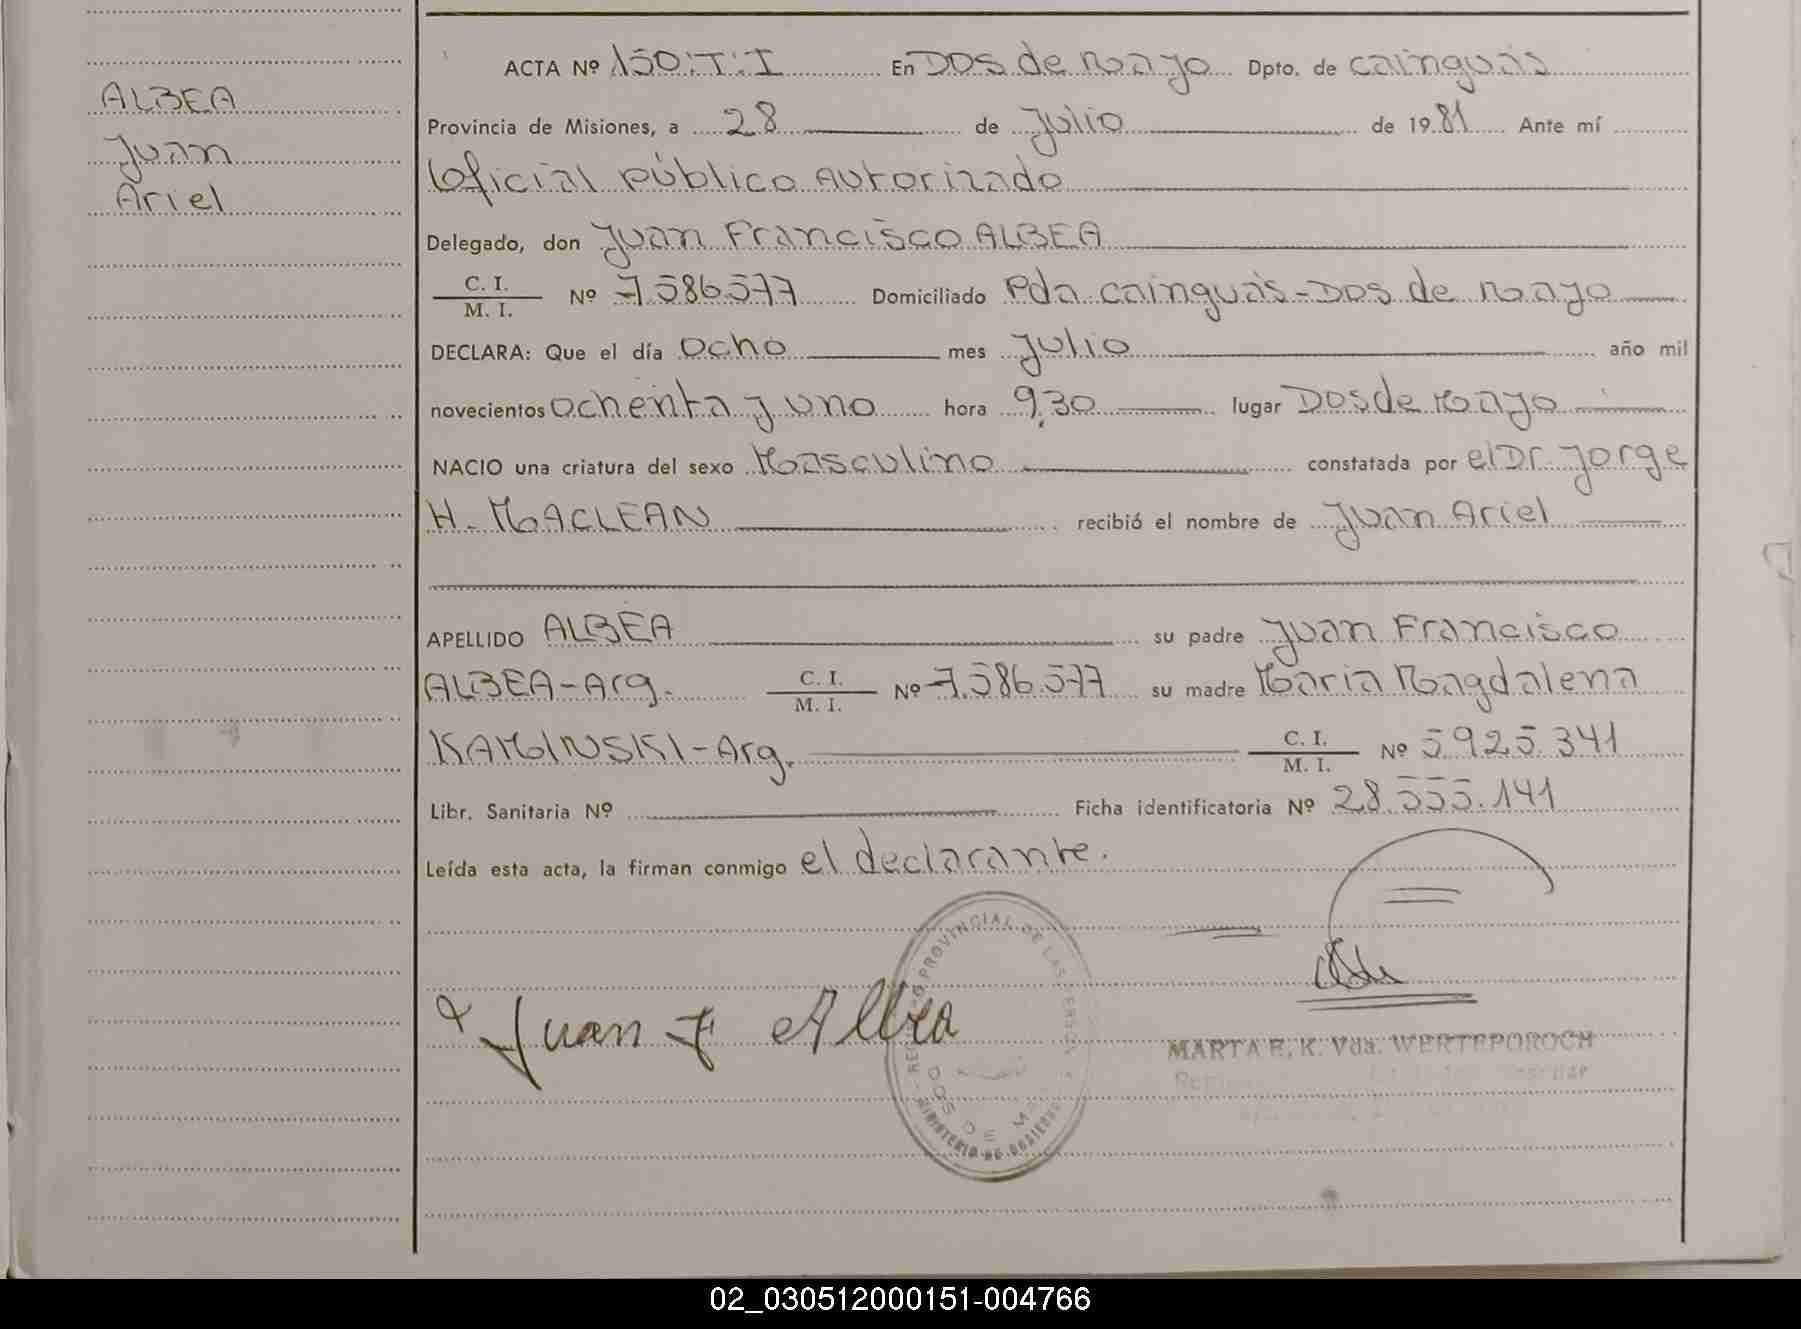 ALBEA
Juan
Ariel
ACTA Nº 150:T:I En Dos de Mayo Dpto. de Cainguás
Provincia de Misiones, a 28 de Julio de 1981 Ante mí
Oficial Público Autorizado
Delegado, don Juan Francisco ALBEA
C. I.
M. I. Nº 7.586.577 Domiciliado Pda Cainguás-Dos de Mayo
DECLARA: Que el día Ocho mes Julio año mil
novecientos ochenta y uno hora 9,30 lugar Dos de Mayo
NACIO una criatura del sexo Masculino constatada por el Dr. Jorge
H. MACLEAN recibió el nombre de Juan Ariel
APELLIDO ALBEA su padre Juan Francisco
ALBEA-Arg. C. I. M. I. Nº 7.586.577 su madre Maria Magdalena
KAMINSKI-Arg. C. I. M. I. Nº 5.925.341
Libr. Sanitaria Nº Ficha identificatoria Nº 28.555.141
Leída esta acta, la firman conmigo el declarante.
PROVINCIAL DE LAS PERSONAS
DOS DE MAYO
MINISTERIO DE GOBIERNO
Juan F Albea
MARTA E. K. Vda. WERTEPOROCH
02_030512000151-004766